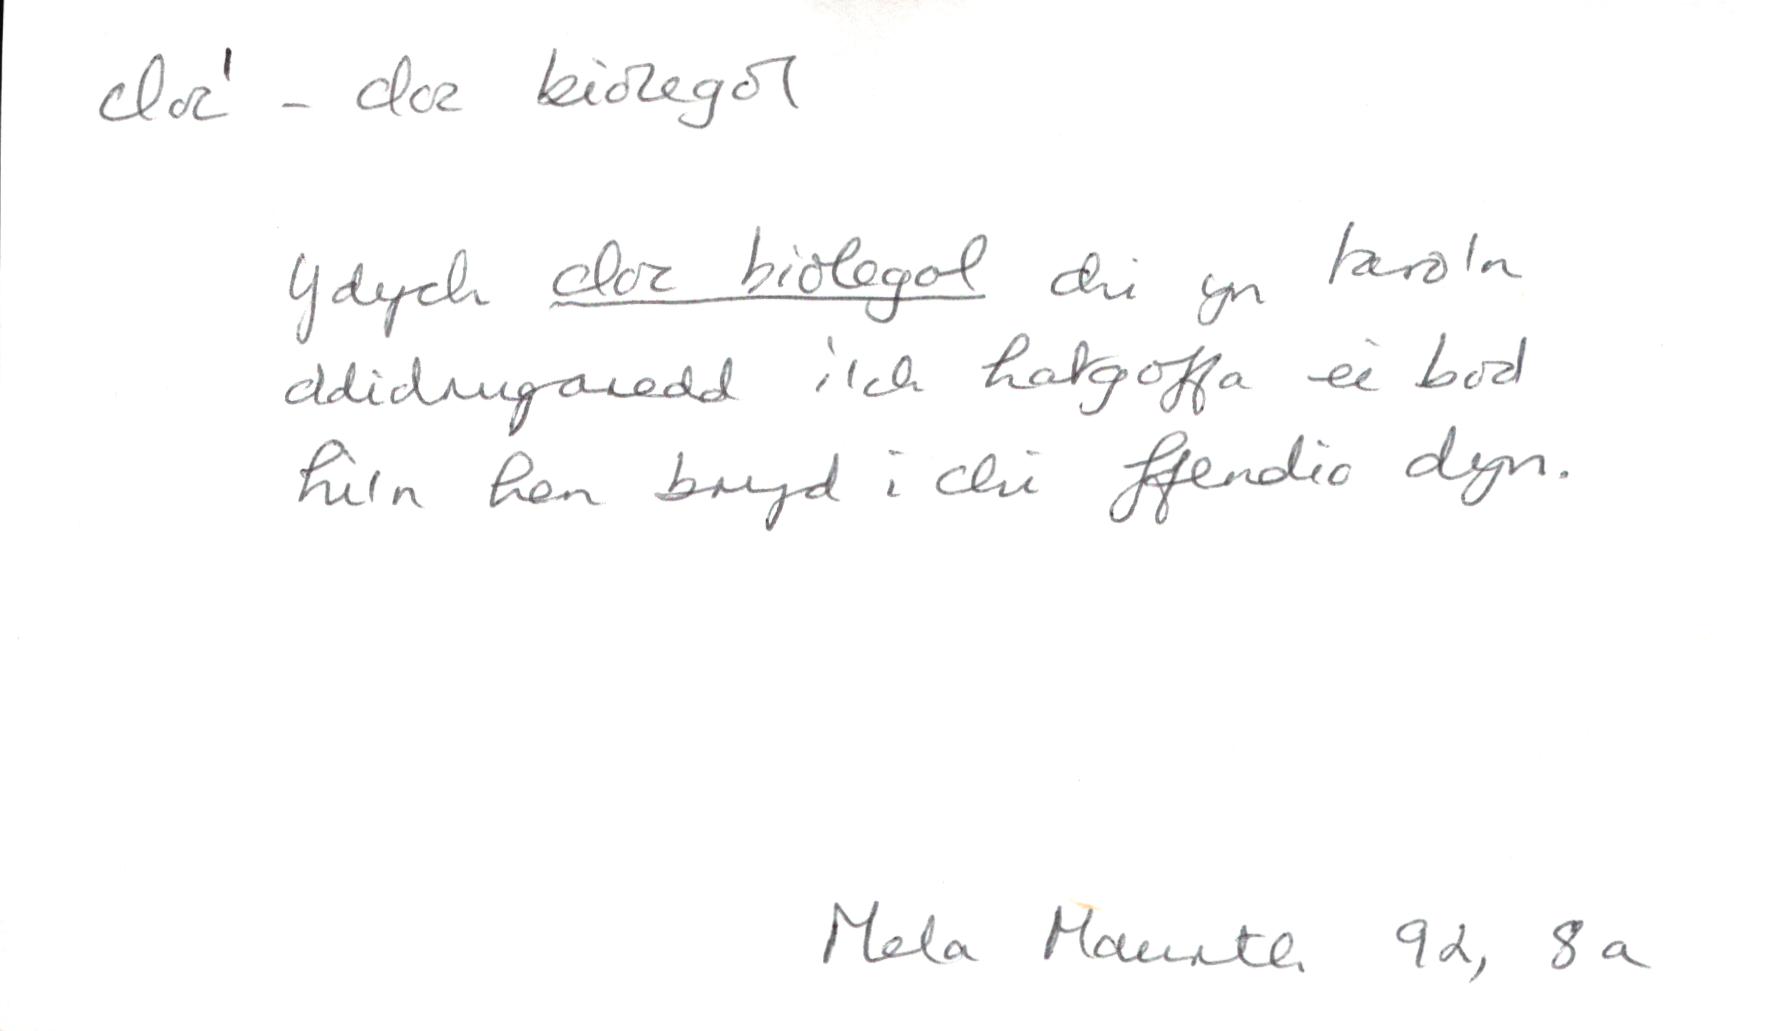 cloc' - cloc biolegol
Ydych cloc biolegol chi yn taro'n
ddidrugaredd i'ch hatgoffa ei bod
hi'n hen bryd i chi ffendio dyn.
Mela Mawrth 92, 8a